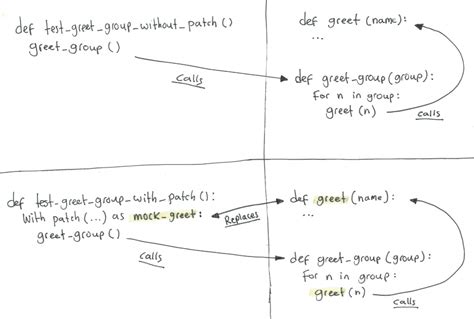 def test_greet_group_without_patch()
greet_group()
calls
def greet(name):
...
def greet-group(group):
for n in group:
greet(n)
calls
def test_greet_group_with_patch():
With patch(...) as mock_greet:
greet_group()
Replaces
calls
def greet(name):
...
def greet_group(group):
for n in group:
greet(n)
calls